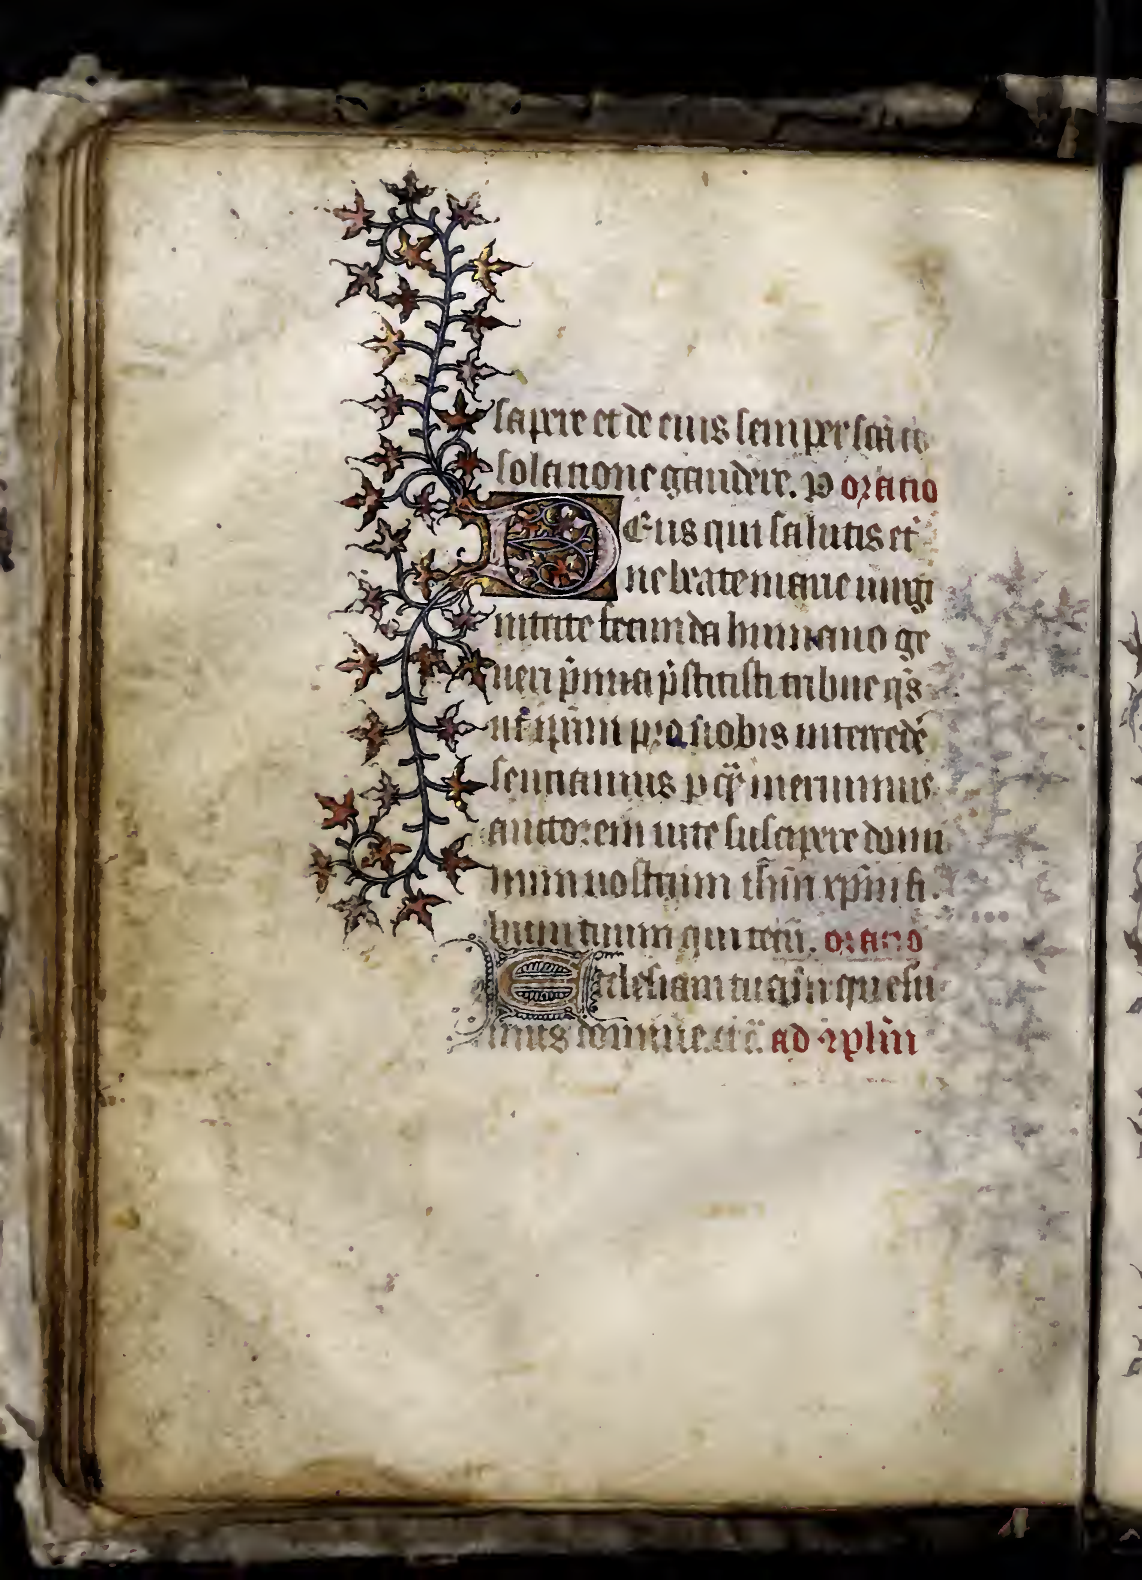 sapere et de eius semper sc̄a cō
solatione gaudere. p̲ oratio
Deus qui salutis et̾
ne beate marie uirgi
nitate fecunda humano ge
neri p̄mia p̄stitisti tribue q̄s
ut ip̄am pro nobis intercede̾
sentiamus p q̄ meruimus
auctorem uite suscipere domi
num nostrum ih̄m xp̄m fi
lium tuum qui tecū. oratio
Ecclesiam tuam quesu
mus domine. etc̄. ad 9plm̄